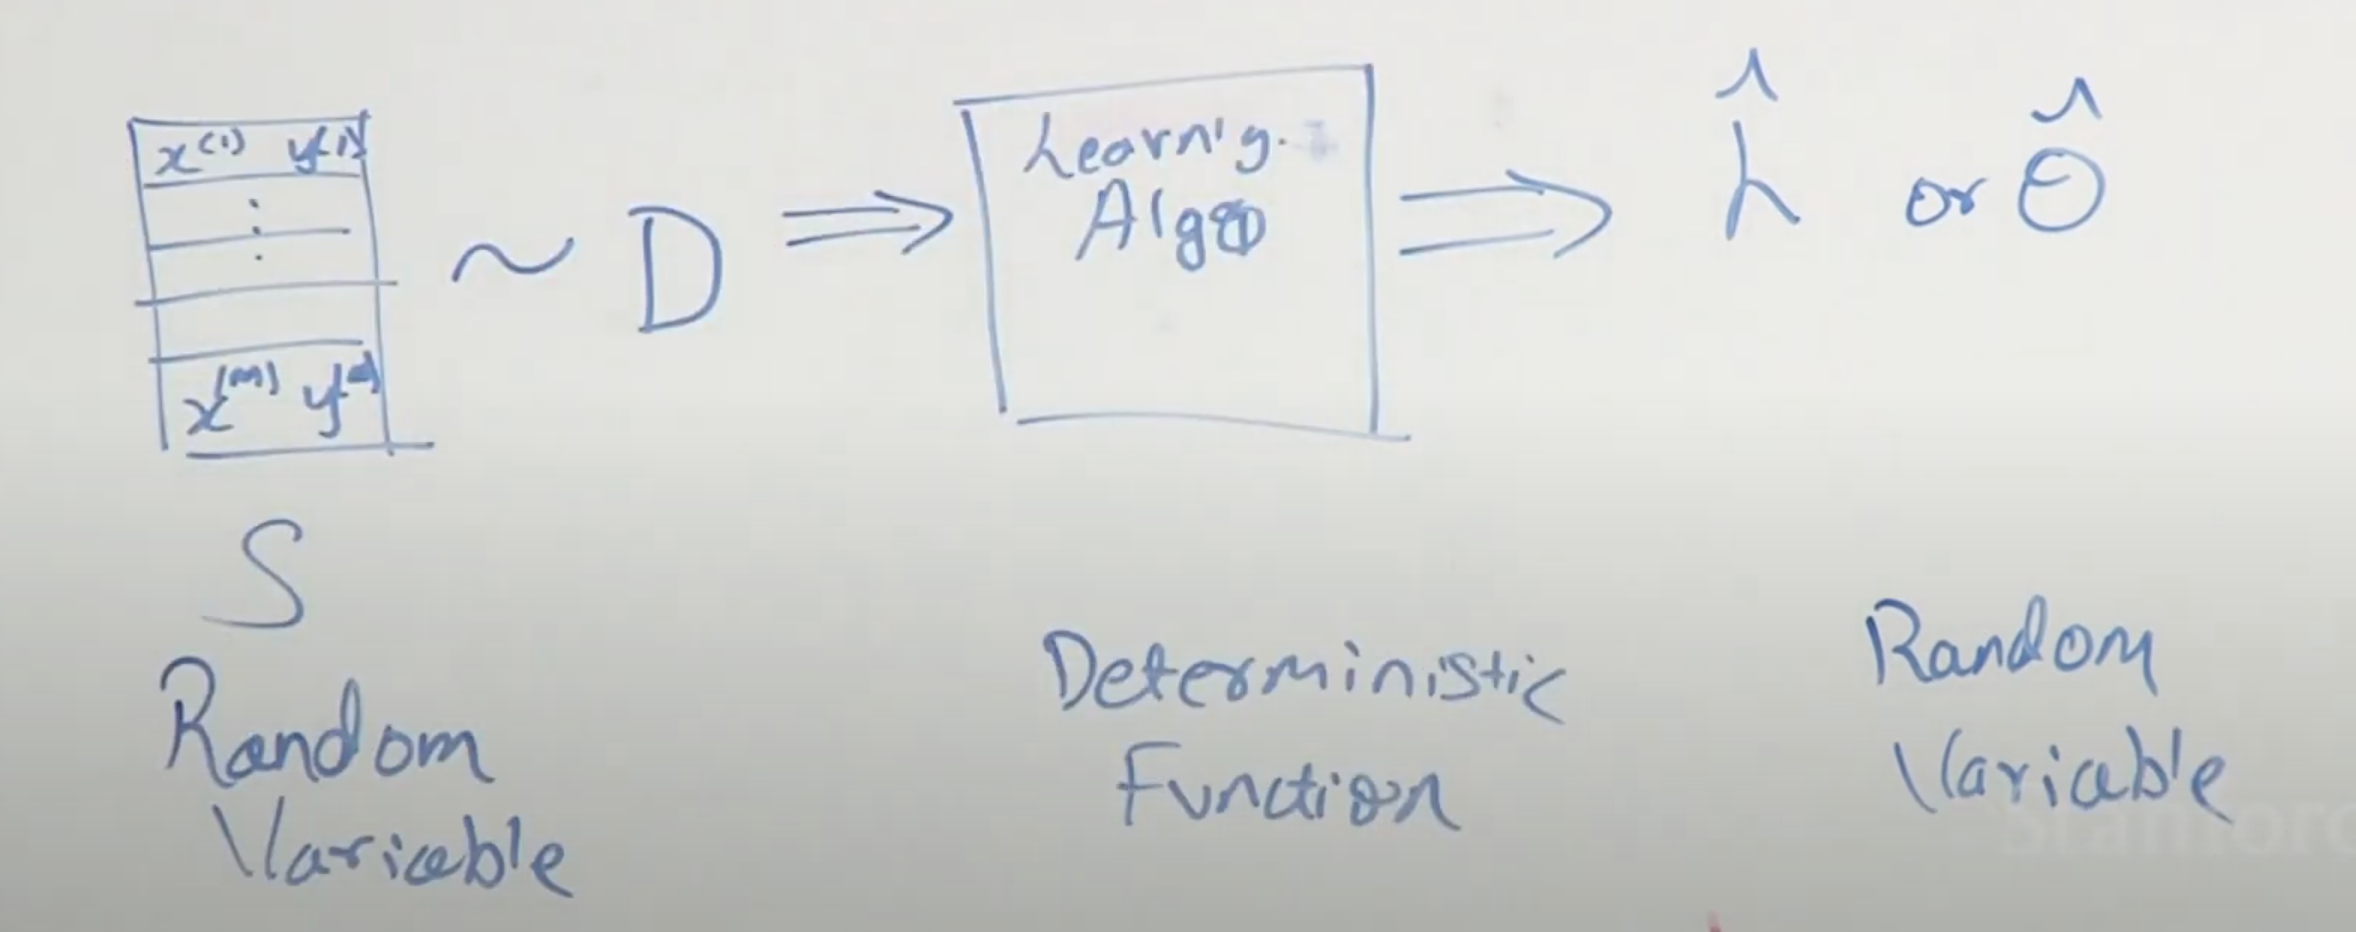 x⁽¹⁾ y⁽¹⁾
⋮
x⁽ᵐ⁾ y⁽ᵐ⁾
~ D ⇒
Learni'g.
Algo
⇒ ĥ or θ̂
S
Random
Variable
Deterministic
Function
Random
Variable
Stanford